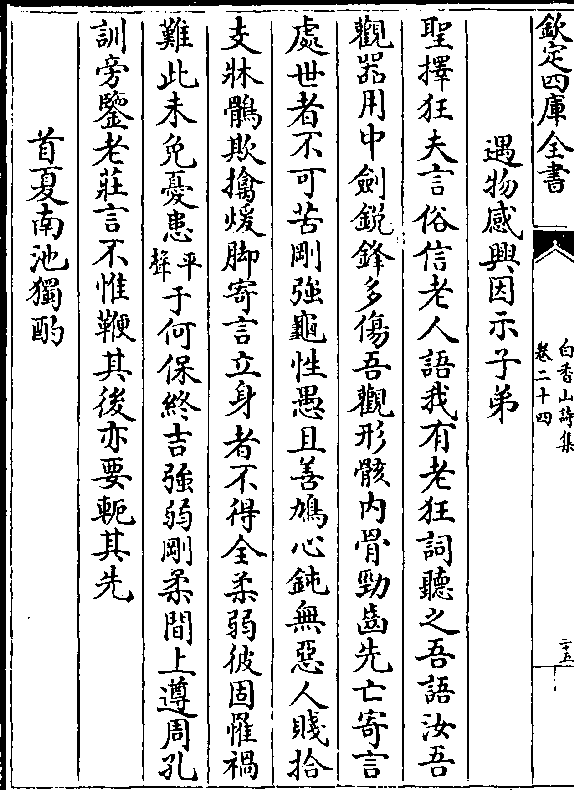 欽定四庫全書
白香山詩集
卷二十四
二十五
遇物感興因示子弟
聖擇狂夫言俗信老人語我有老狂詞聽之吾語汝吾
觀器用中劍鋭鋒多傷吾觀形骸内骨勁齒先亡寄言
處世者不可苦剛強龜性愚且善鳩心鈍無惡人賤拾
支牀鶻欺擒煖脚寄言立身者不得全柔弱彼固罹禍
難此未免憂患平聲于何保終吉強弱剛柔間上遵周孔
訓旁鑒老莊言不惟鞭其後亦要軛其先
首夏南池獨酌